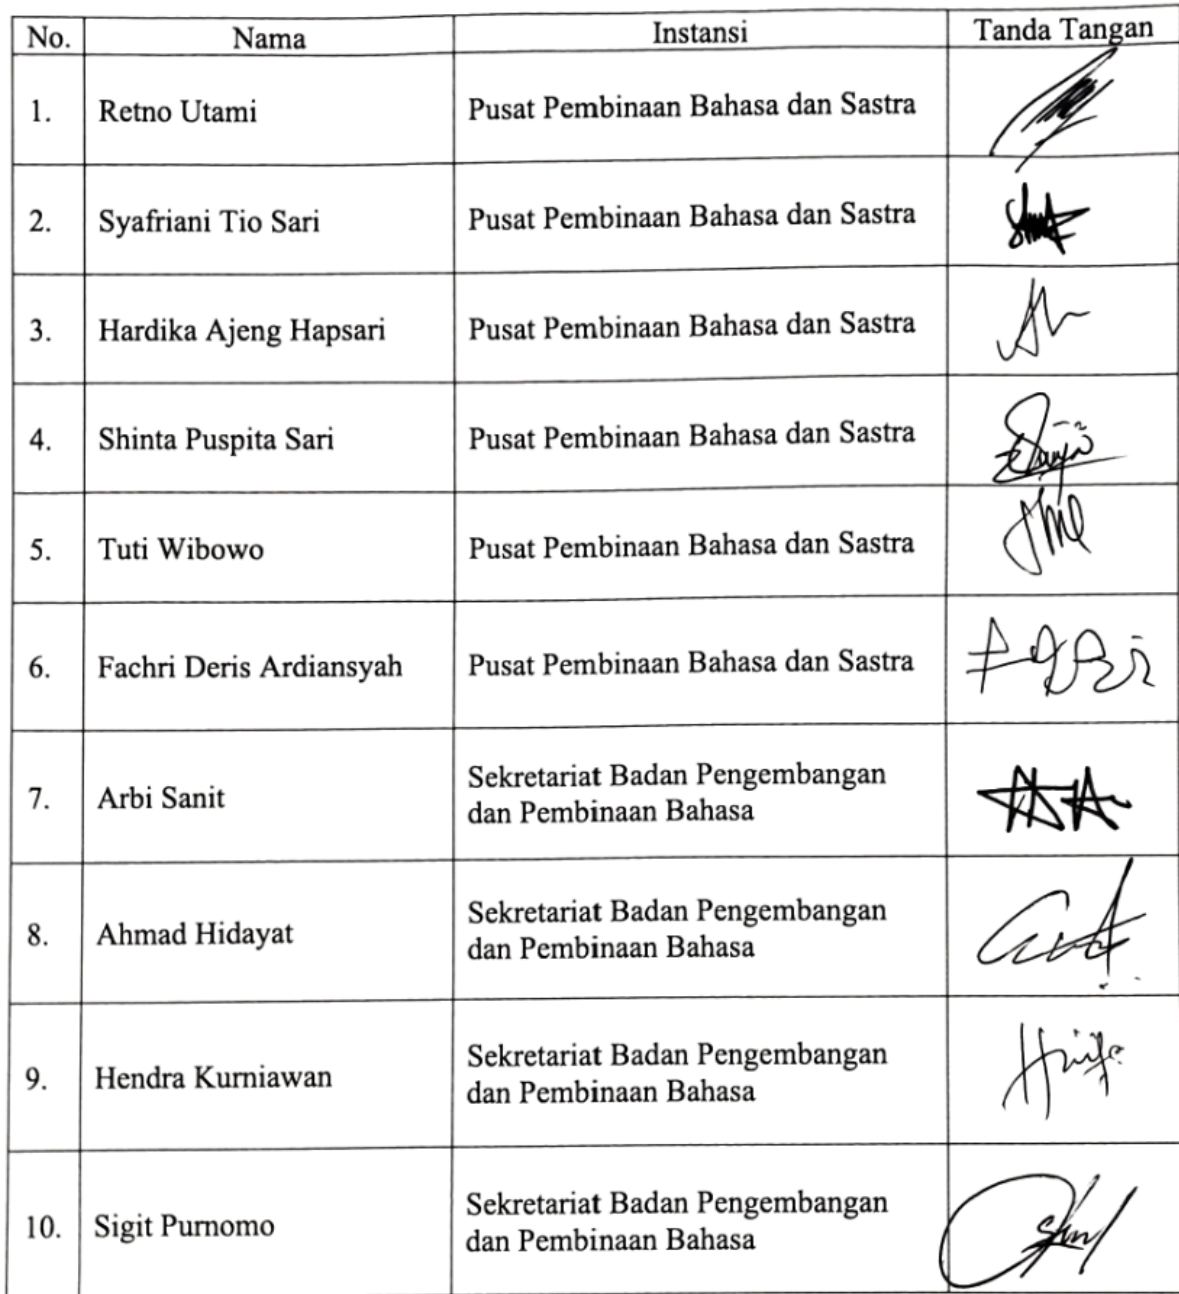 No. Nama Instansi Tanda Tangan
1. Retno Utami Pusat Pembinaan Bahasa dan Sastra
2. Syafriani Tio Sari Pusat Pembinaan Bahasa dan Sastra
3. Hardika Ajeng Hapsari Pusat Pembinaan Bahasa dan Sastra
4. Shinta Puspita Sari Pusat Pembinaan Bahasa dan Sastra
5. Tuti Wibowo Pusat Pembinaan Bahasa dan Sastra
6. Fachri Deris Ardiansyah Pusat Pembinaan Bahasa dan Sastra
7. Arbi Sanit Sekretariat Badan Pengembangan
dan Pembinaan Bahasa
8. Ahmad Hidayat Sekretariat Badan Pengembangan
dan Pembinaan Bahasa
9. Hendra Kurniawan Sekretariat Badan Pengembangan
dan Pembinaan Bahasa
10. Sigit Purnomo Sekretariat Badan Pengembangan
dan Pembinaan Bahasa